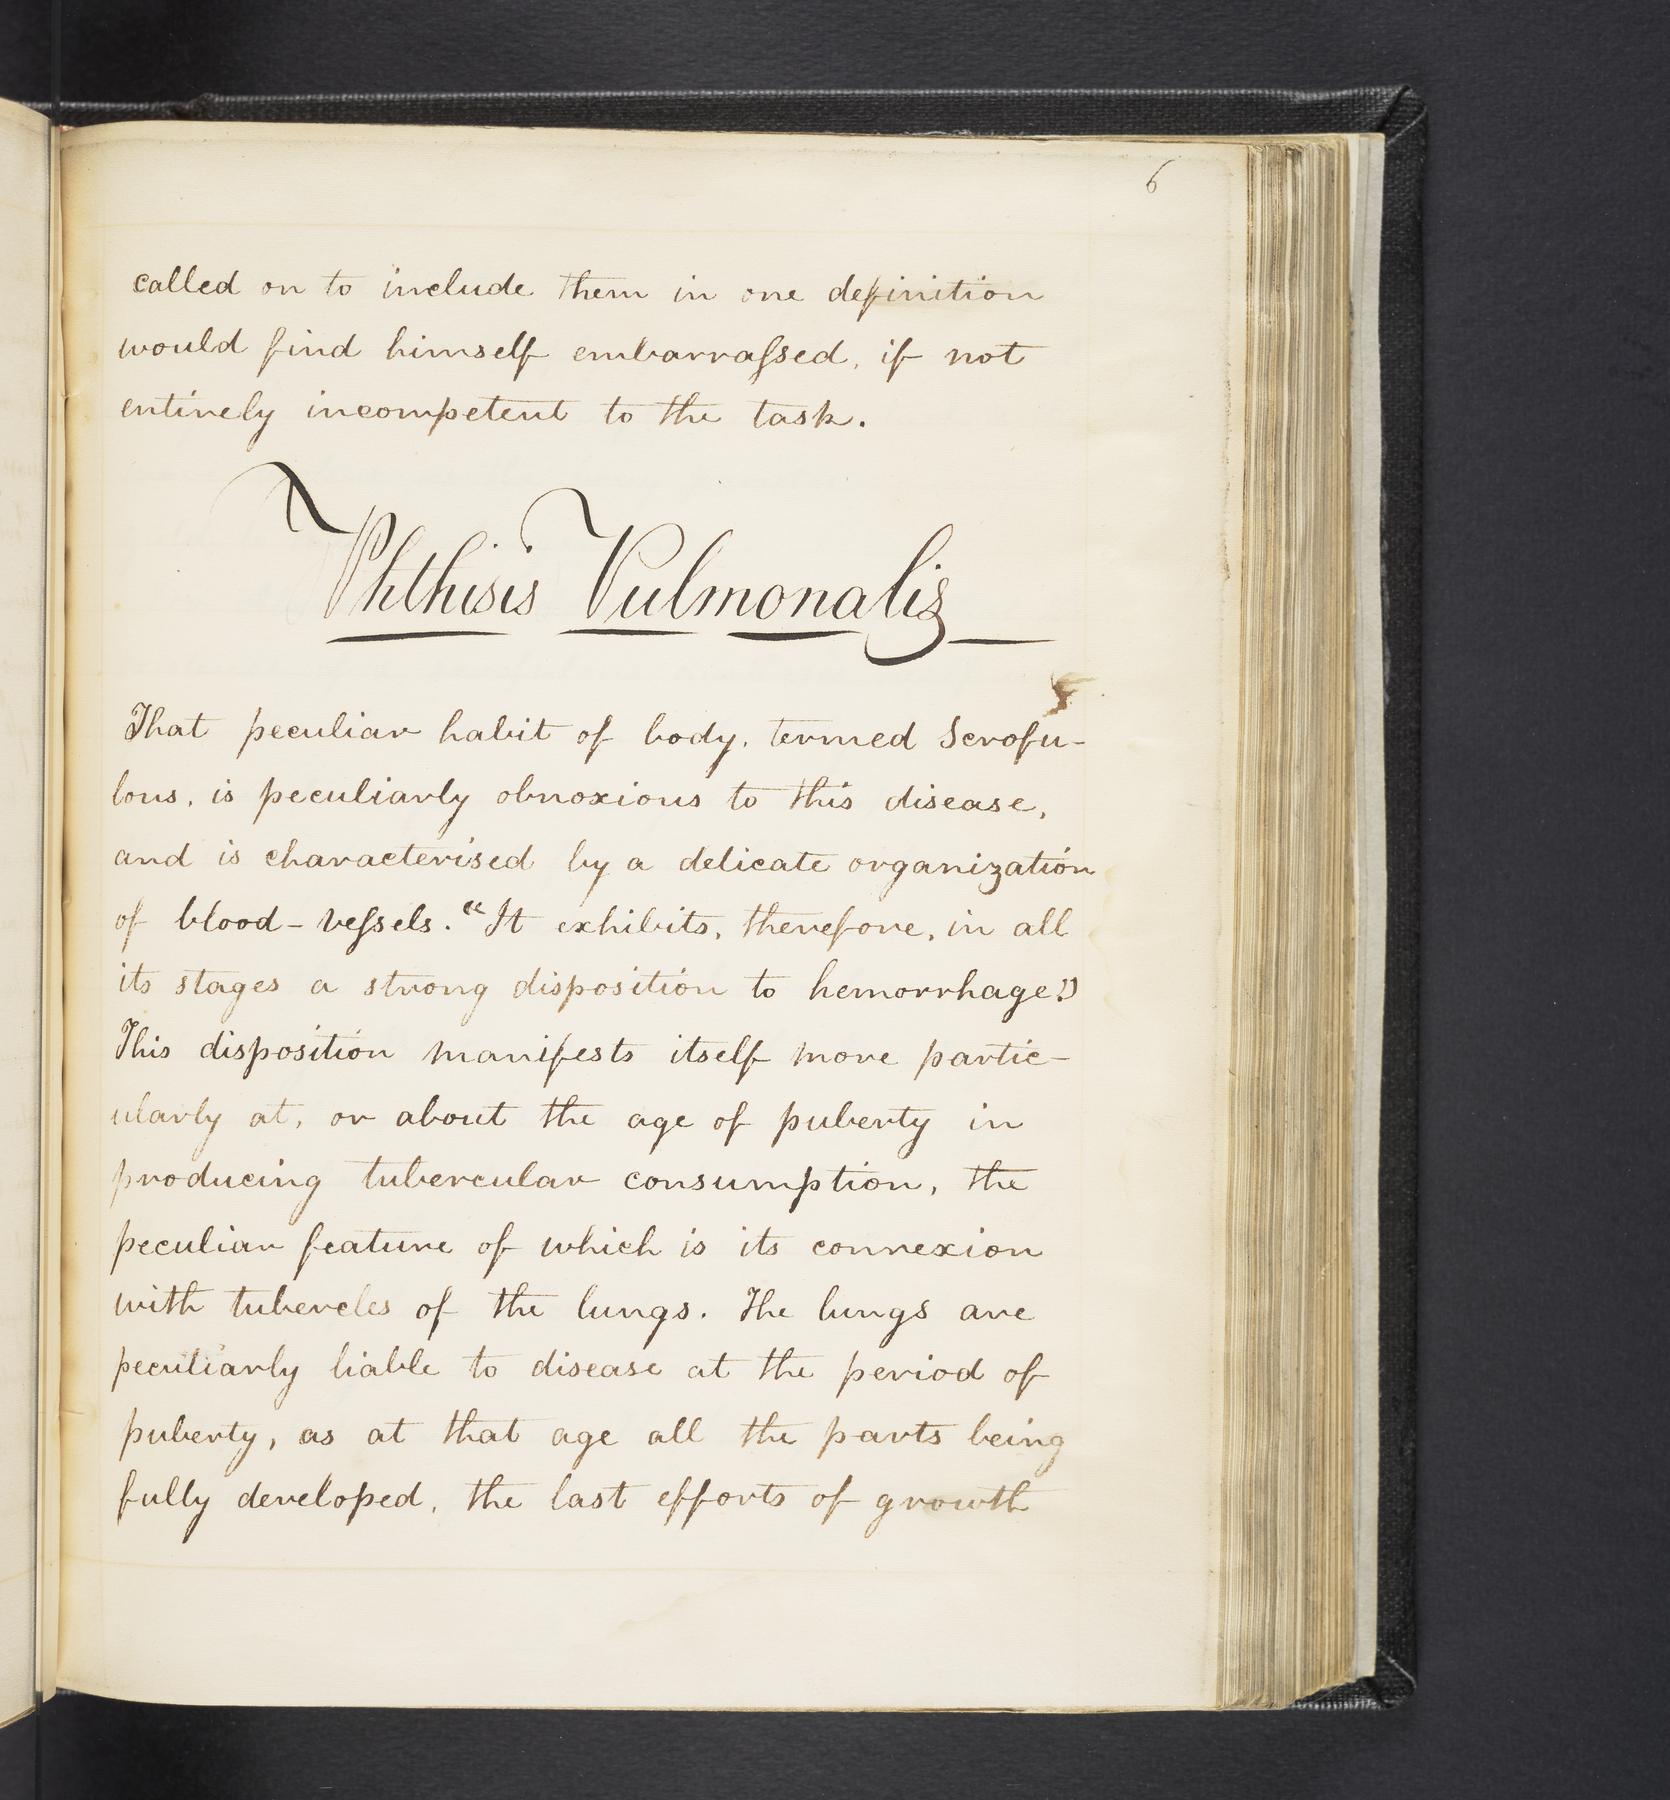 6
called on to include them in one definition
would find himself embarraſsed, if not
entirely incompetent to the task.
Phthisis Pulmonalis
That peculiar habit of body, termed Scrofu-
lous, is peculiarly obnoxious to this disease,
and is characterised by a delicate organization
of blood-veſsels. "It exhibits, therefore, in all
its stages a strong disposition to hemorrhage."
This disposition manifests itself more partic-
ularly at, or about the age of puberty in
producing tubercular consumption, the
peculiar feature of which is its connexion
with tubercles of the lungs. The lungs are
peculiarly liable to disease at the period of
puberty, as at that age all the parts being
fully developed, the last efforts of growth